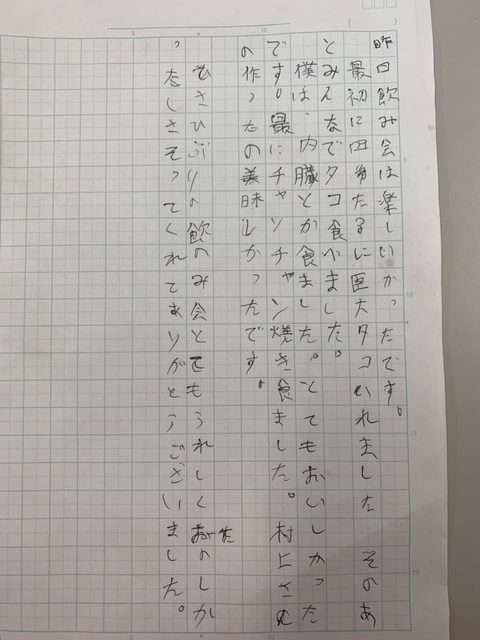 昨日飲み会は楽しいかったです。
最初に たるに巨大タコいれました そのあ
とみんなでタコ食べました。
僕は、内臓とか食ました。とてもおいしかった
です。最にチャンチャン焼き食ました。村上さん
の作ったの美味しかったです。
ひさひぶりの飲のみ会とてもうれしくたのしか
ったしさそってくれてありがとうございました。